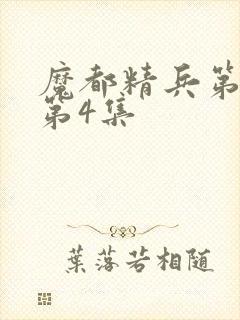 魔都精兵第
第4集
葉落若相随